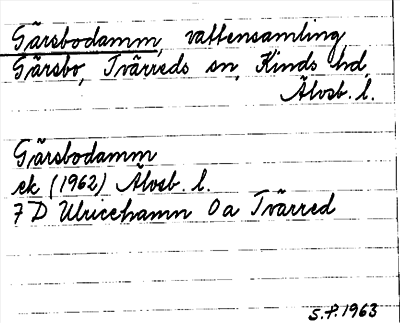 Gärsbodamm, vattensamling
Gärsbo, Tvärreds sn, Kinds hd,
Älvsb. l.
Gärsbodamm
ek (1962) Älvsb. l.
7 D Ulricehamn 0a Tvärred
S.F. 1963